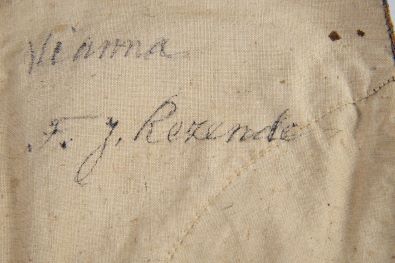 Vianna
F. J. Rezende